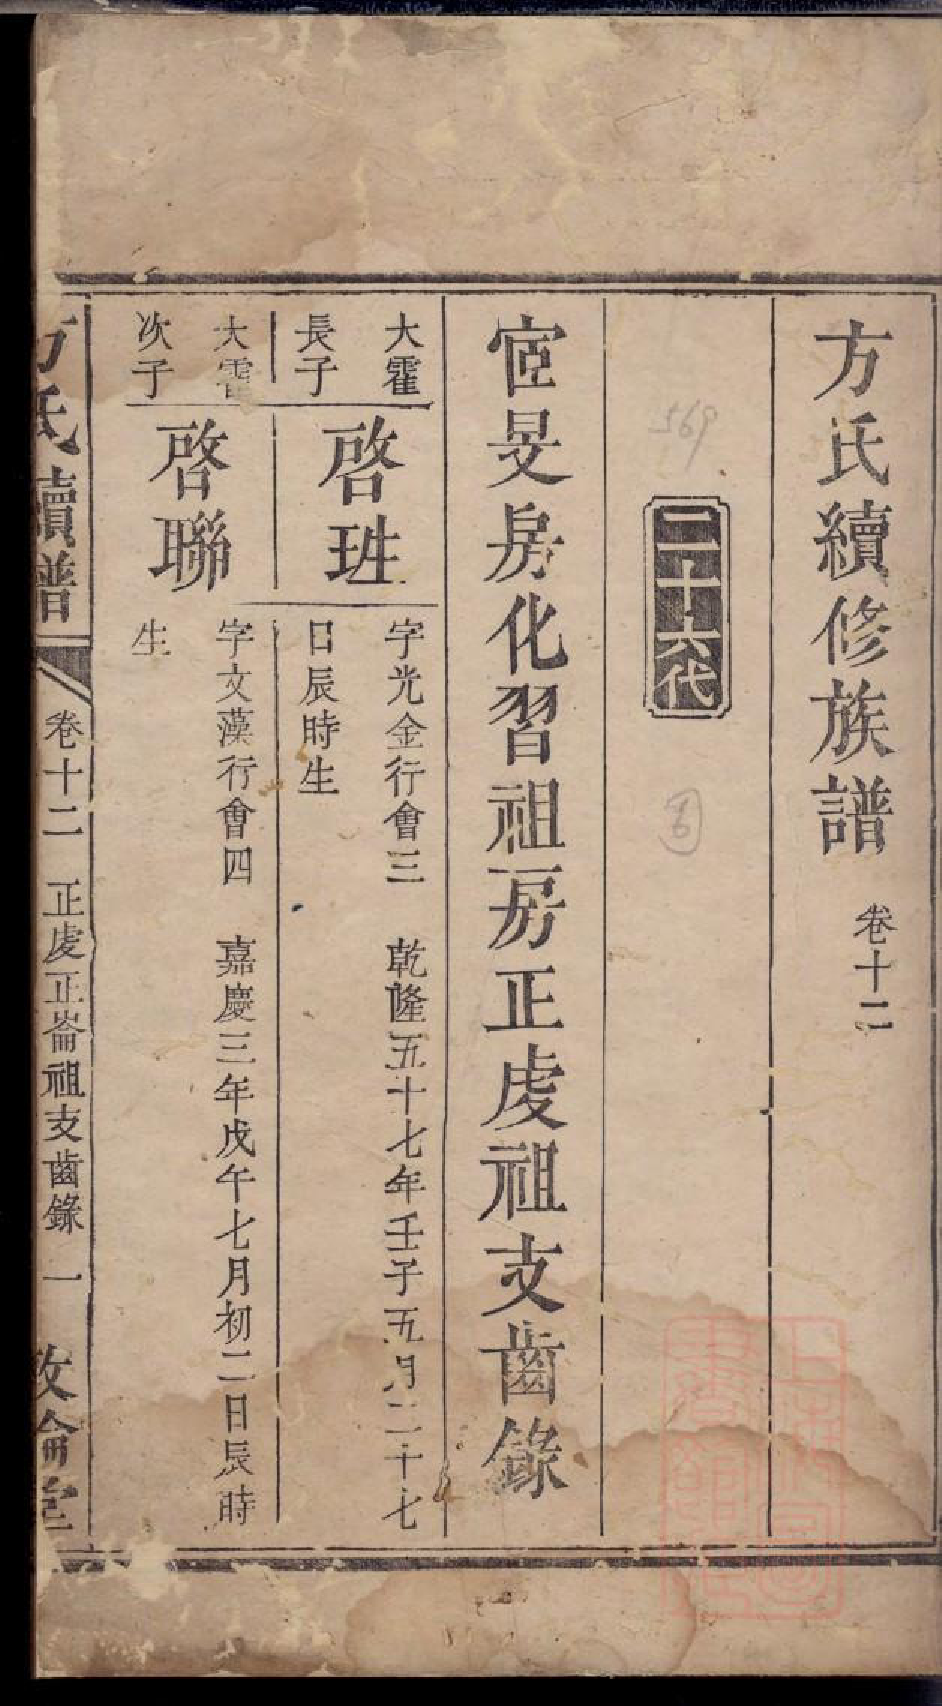 方氏續修族譜 卷十二
569
二十六代
宦旻房化習祖房正虔祖支齒錄
大霍長子
啓珄
字光金行會三 乾隆五十七年壬子五月二十七
日辰時生
大霍次子
啓聯
字文藻行會四 嘉慶三年戊午七月初二日辰時
生
方氏續譜 卷十二 正虔正崙祖支齒錄 一 敦倫堂